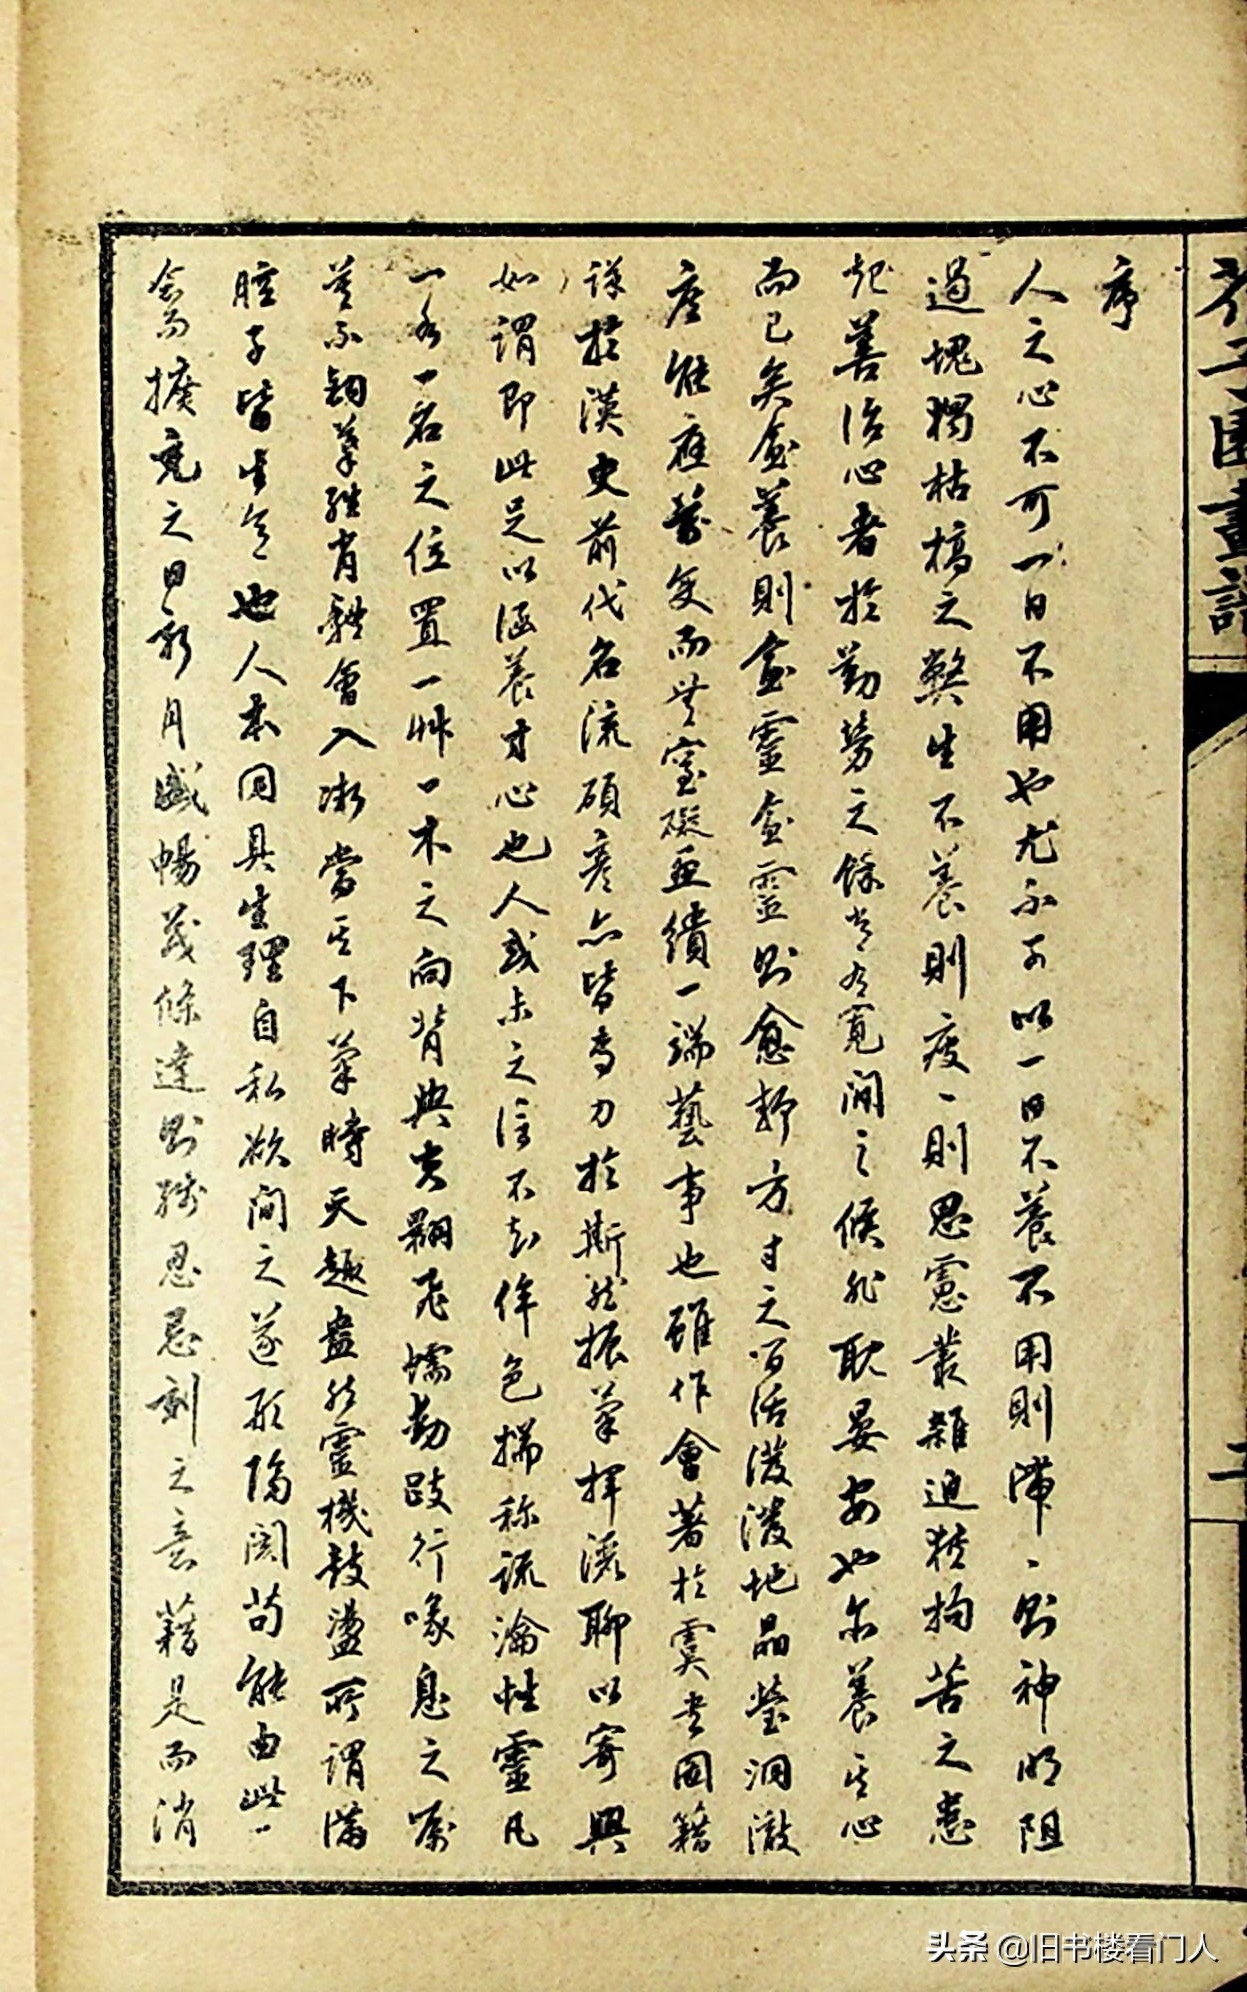 序
人之心不可一日不用也尤不可以一日不養不用則滯〻則神明阻
遏塊獨枯槁之弊生不養則疲〻則思慮叢雜迫狭拘苦之患
起善治心者於勤勞之餘嘗为寬閒之候非耽晏安也亦養其心
而已矣愈養則愈靈愈靈則愈靜方寸之間活潑潑地晶瑩洞澈
應萬变而無窒礙亚繢一端藝事也雖作會著於虞書圖籍
詳於漢史前代名流碩彥亦皆專力於斯然振筆揮灑聊以寄興
如謂即此足以涵養寸心也人或未之信不知侔色揣称疏瀹性靈凡
一水一石之位置一艸一木之向背與夫翾飛蠕動跂行喙息之
莫不鉤摹維肖融會入當其下筆時天趣盎然靈機鼓盪所謂滿
腔子皆生意也人本同具生理自私欲間之遂形隔閡苟能由此一
念而擴充之日新月盛暢茂條達則殘忍忌刻之意藉是而消
芥子園畫譜
二
头条 @旧书楼看门人